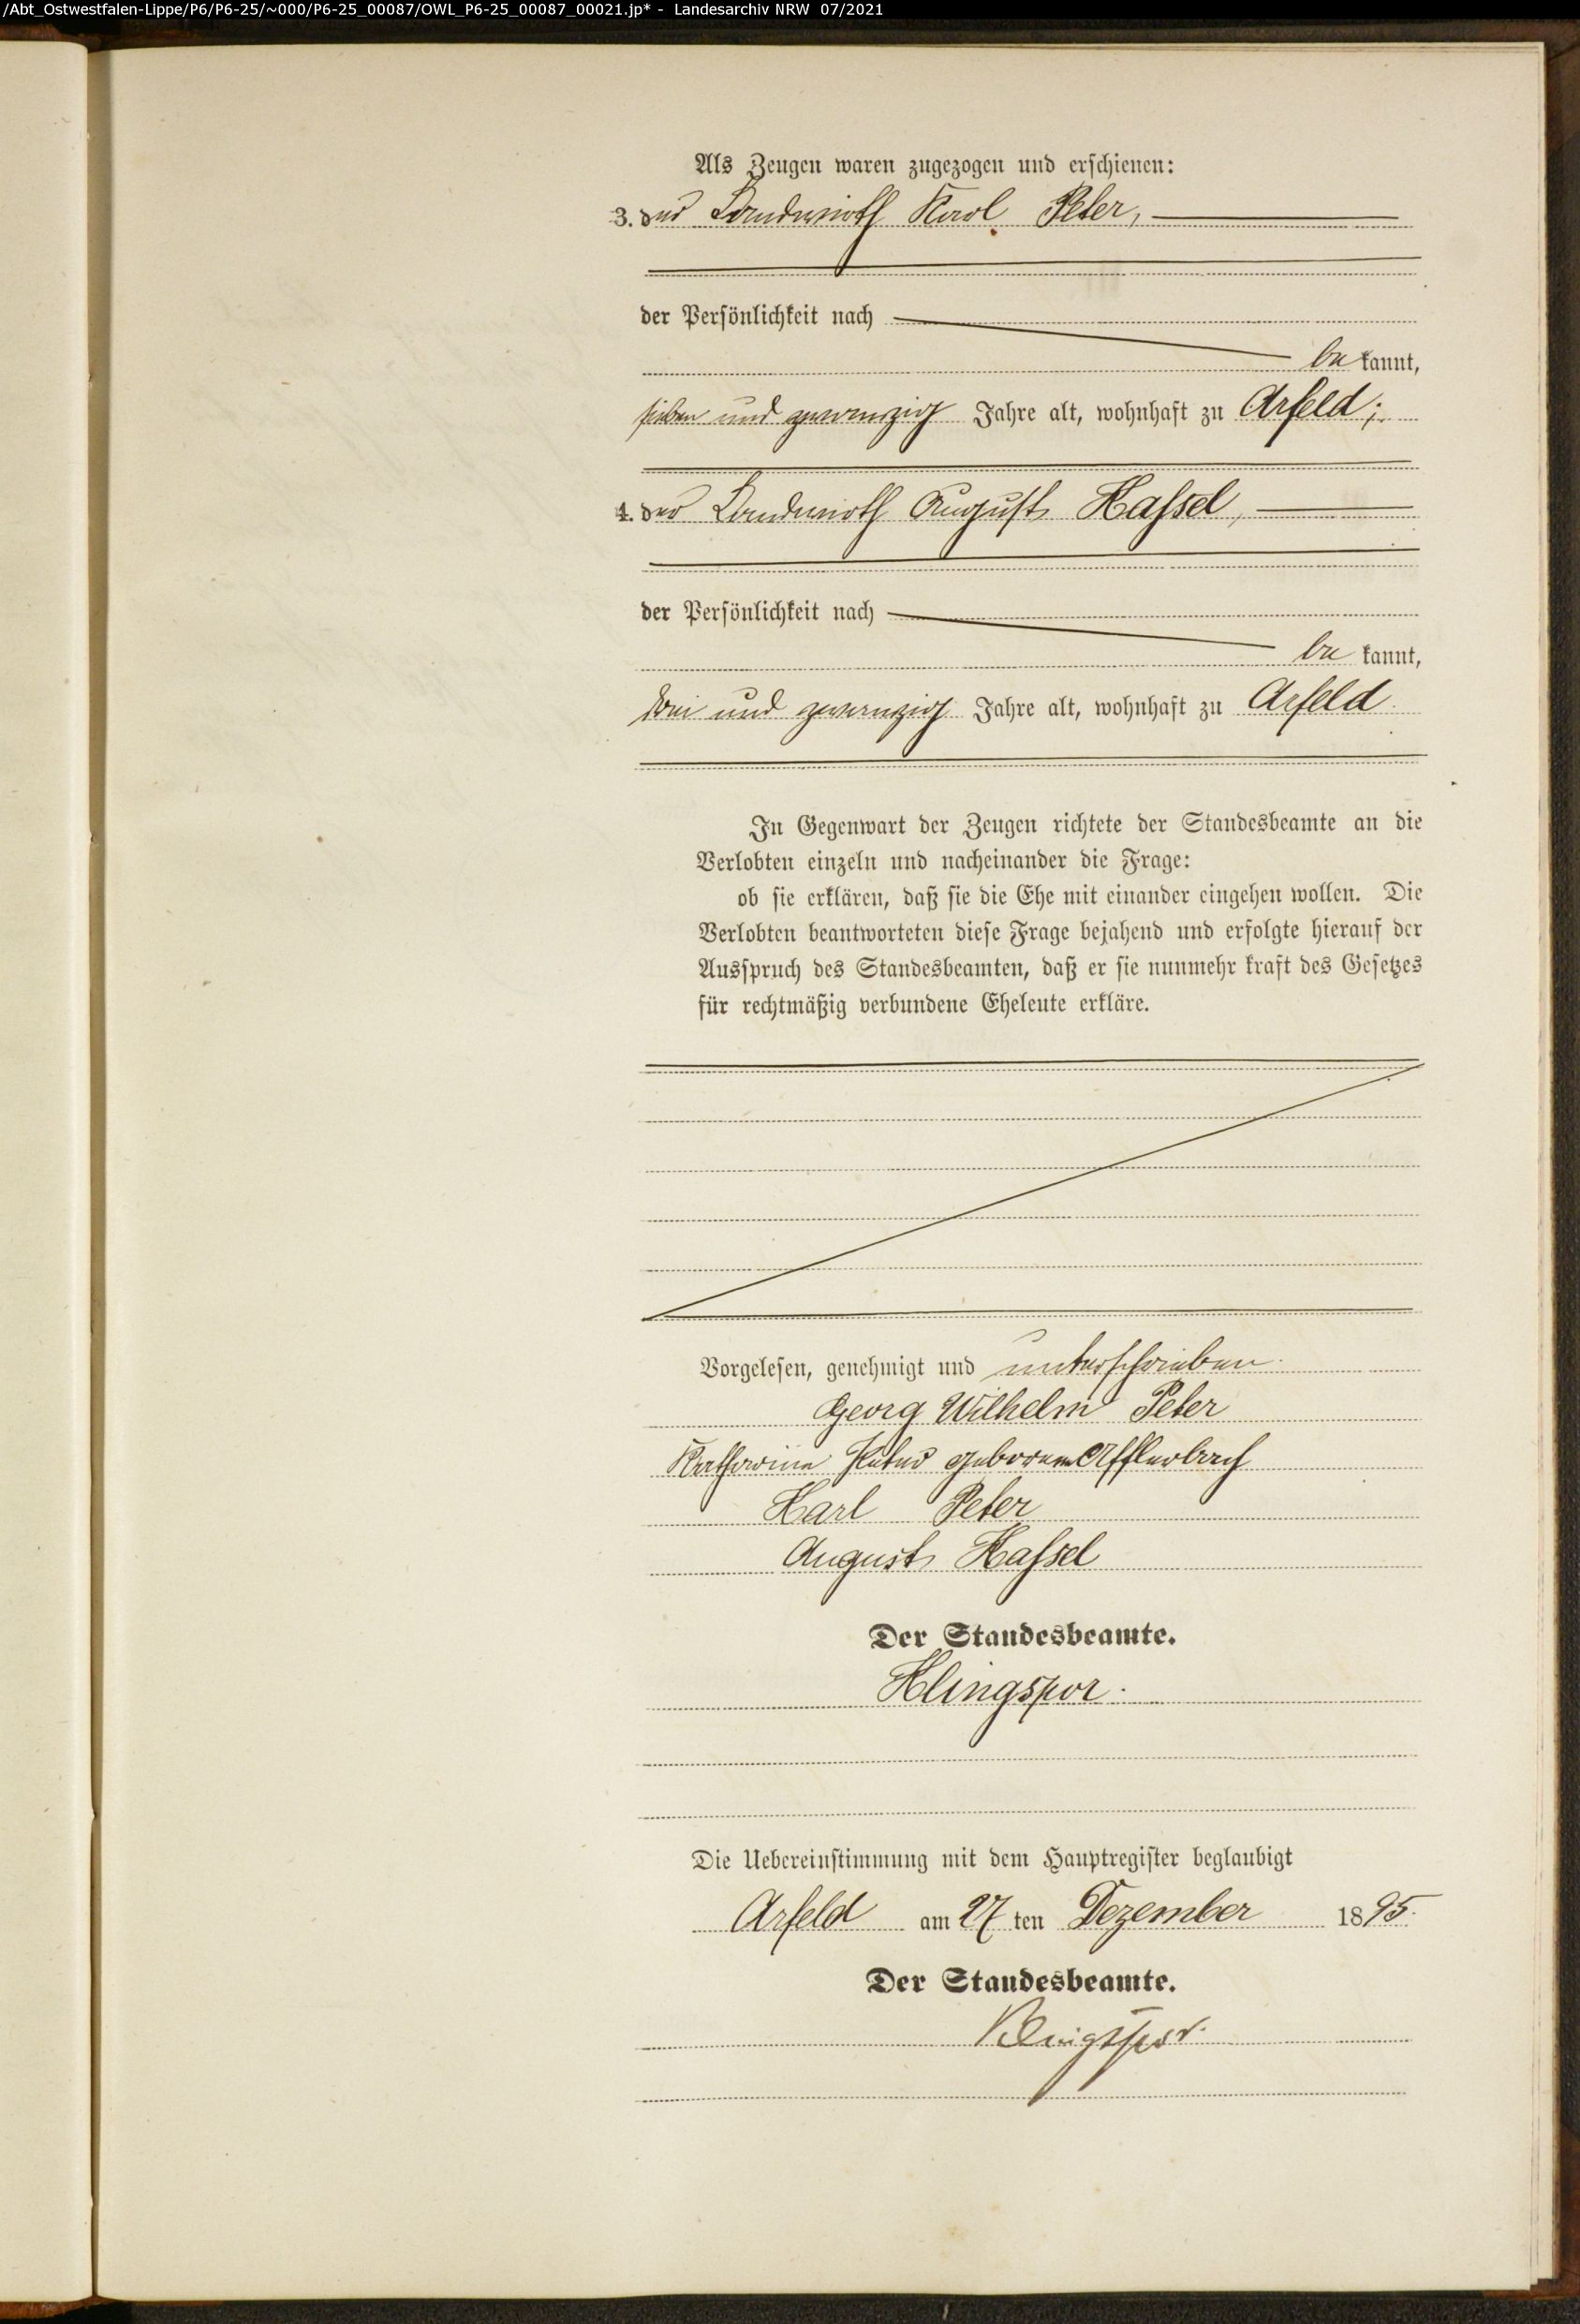 /Abt_Ostwestfalen-Lippe/P6/P6-25/~000/P6-25_00087/OWL_P6-25_00087_00021.jp* - Landesarchiv NRW 07/2021
Als Zeugen waren zugezogen und erschienen:
3. der Landwirth Karl Peter,
der Persönlichkeit nach
bekannt,
sieben und zwanzig Jahre alt, wohnhaft zu Arfeld;
4. der Landwirth August Hassel,
der Persönlichkeit nach
bekannt,
drei und zwanzig Jahre alt, wohnhaft zu Arfeld
In Gegenwart der Zeugen richtete der Standesbeamte an die
Verlobten einzeln und nacheinander die Frage:
ob sie erklären, daß sie die Ehe mit einander eingehen wollen. Die
Verlobten beantworteten diese Frage bejahend und erfolgte hierauf der
Ausspruch des Standesbeamten, daß er sie nunmehr kraft des Gesetzes
für rechtmäßig verbundene Eheleute erkläre.
Vorgelesen, genehmigt und unterschrieben.
Georg Wilhelm Peter
Katharine Peter geborene Afflerbach
Karl Peter
August Hassel
Der Standesbeamte.
Klingspor.
Die Uebereinstimmung mit dem Hauptregister beglaubigt
Arfeld am 27 ten Dezember 1895.
Der Standesbeamte.
Klingspor.